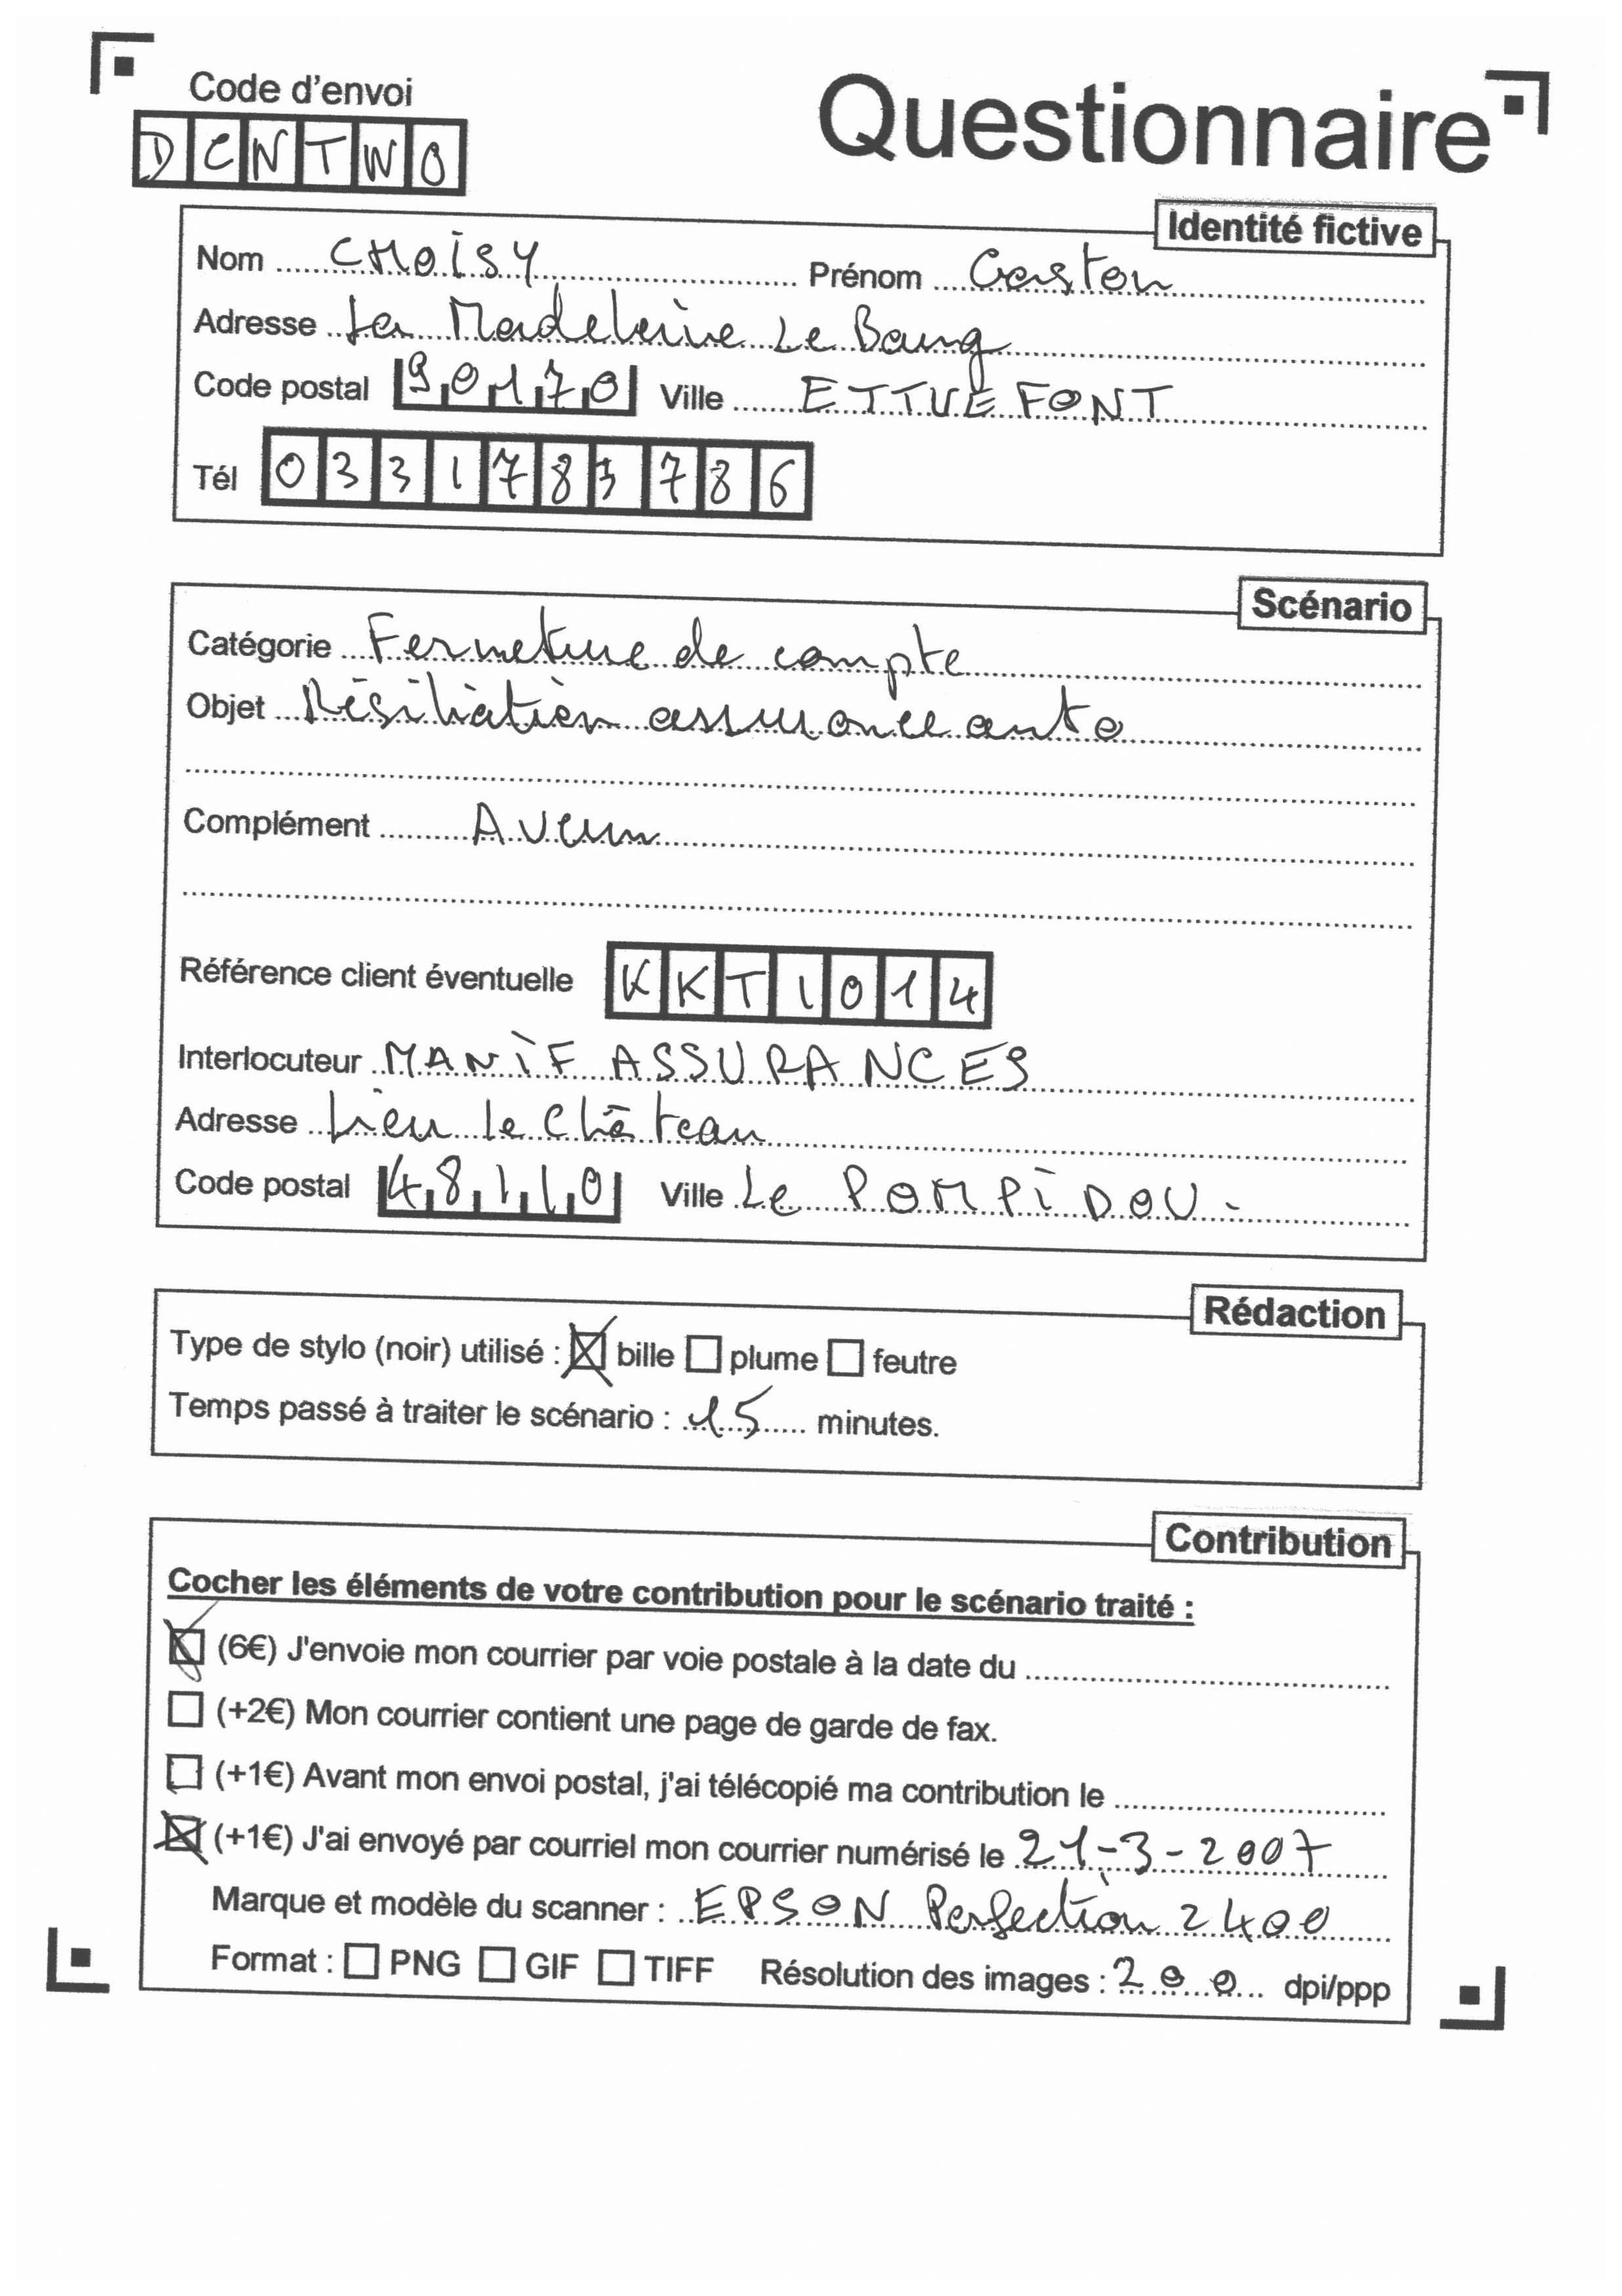 Code d'envoi
Questionnaire
DCNTWO
Identité fictive
Nom CHOISY Prénom Gaston
Adresse La Madeleine Le Bourg
Code postal 90170 Ville ETTUEFONT
Tél 0331783786
Scénario
Catégorie Fermeture de compte
Objet Résiliation assurance auto
Complément Aucun
Référence client éventuelle KKT1014
Interlocuteur MANIF ASSURANCES
Adresse Lieu le Château
Code postal 48110 Ville Le POMPIDOU-
Rédaction
Type de stylo (noir) utilisé : bille plume feutre
Temps passé à traiter le scénario : 15 minutes.
Contribution
Cocher les éléments de votre contribution pour le scénario traité :
(6€) J'envoie mon courrier par voie postale à la date du
(+2€) Mon courrier contient une page de garde de fax.
(+1€) Avant mon envoi postal, j'ai télécopié ma contribution le
(+1€) J'ai envoyé par courriel mon courrier numérisé le 21-3-2007
Marque et modèle du scanner : EPSON Perfection 2400
Format : PNG GIF TIFF Résolution des images : 200 dpi/ppp